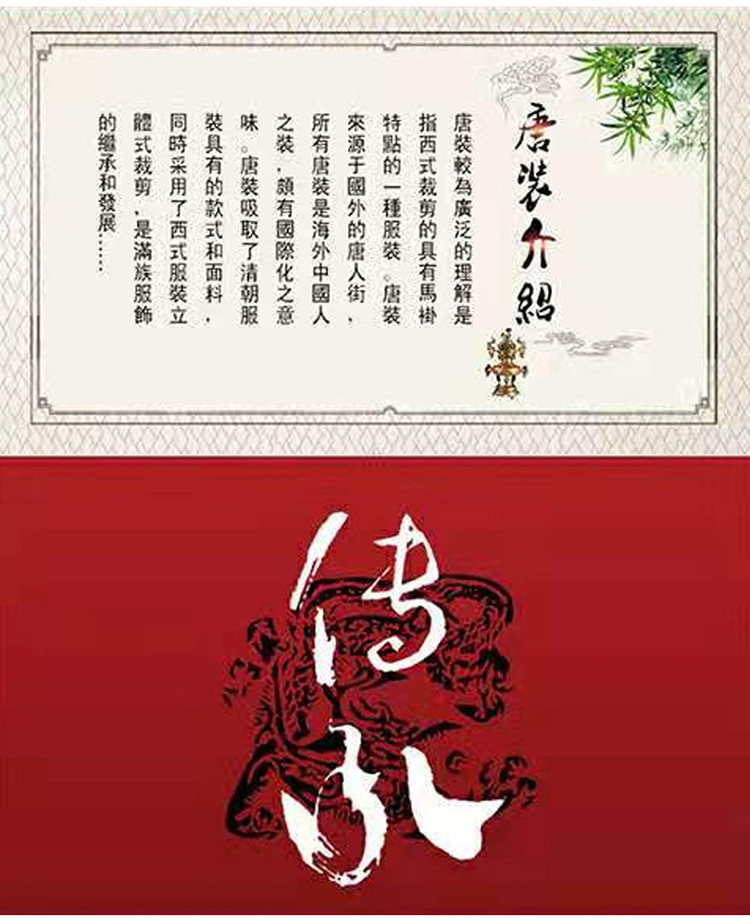 唐裝介紹
唐裝較為廣泛的理解是
指西式裁剪的具有馬褂
特點的一種服裝。唐裝
來源于國外的唐人街，
所有唐裝是海外中國人
之裝，頗有國際化之意
味。唐裝吸取了清朝服
裝具有的款式和面料，
同時采用了西式服裝立
體式裁剪，是滿族服飾
的繼承和發展……
传承